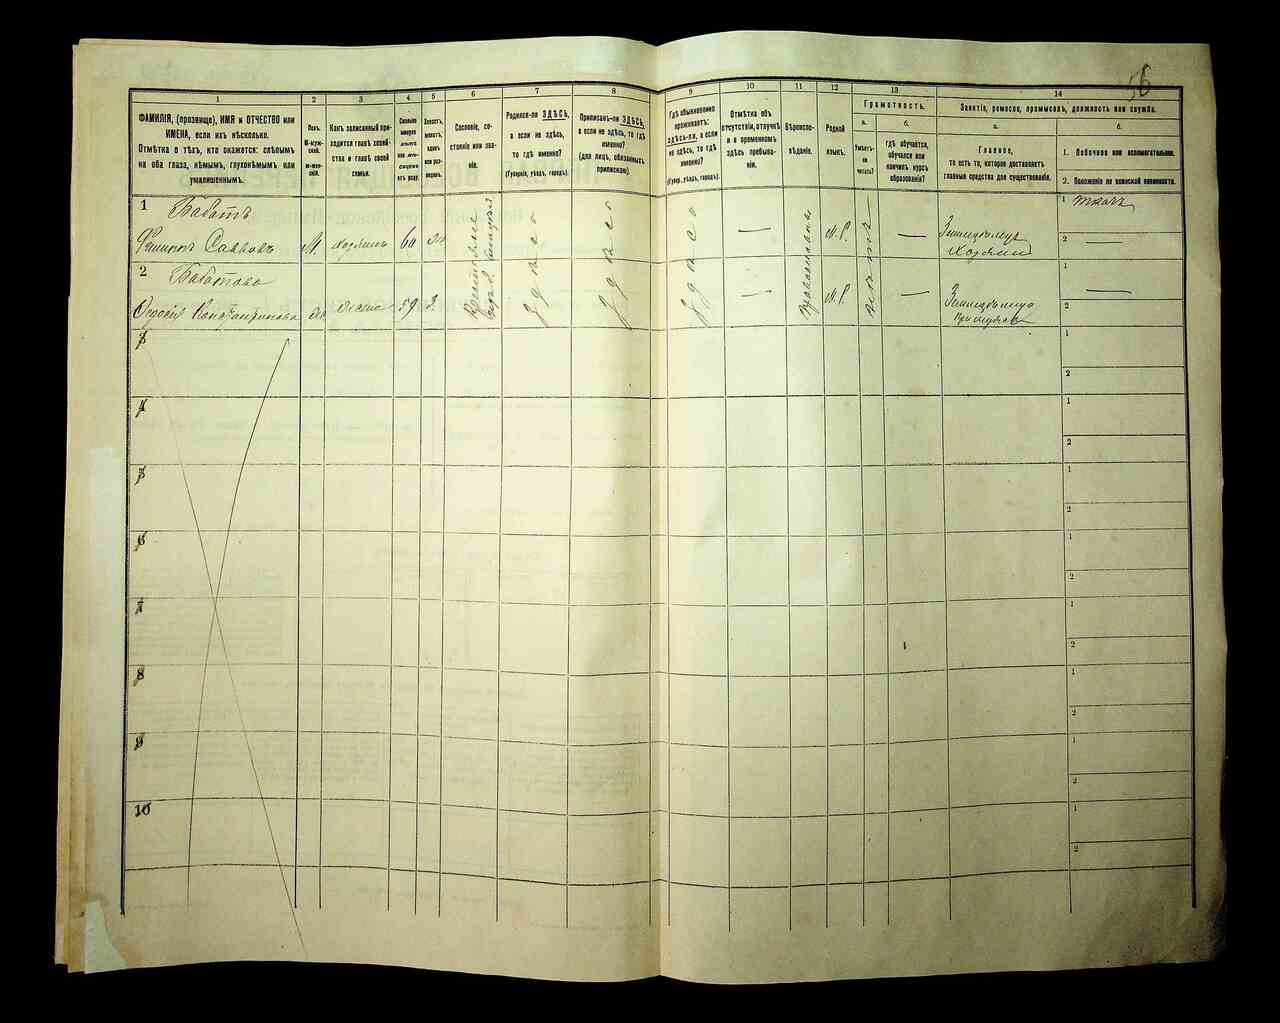 56
1
2
3
4
5
6
7
8
9
10
11
12
13
14
ФАМИЛІЯ, (прозвище), ИМЯ и ОТЧЕСТВО или
ИМЕНА, если ихъ нѣсколько.
Отмѣтка о тѣхъ, кто окажется: слѣпымъ
на оба глаза, нѣмымъ, глухонѣмымъ или
умалишеннымъ.
Полъ.
М-муж-
ской.
Ж-жен-
скій.
Какъ записанный при-
ходится главѣ хозяй-
ства и главѣ своей
семьи.
Сколько
минуло
лѣтъ
или мѣ-
сяцевъ
отъ роду.
Холостъ,
женатъ,
вдовъ
или раз-
веденъ.
Сословіе, со-
стояніе или зва-
ніе.
Родился-ли ЗДѢСЬ,
а если не здѣсь,
то гдѣ именно?
(Губернія, уѣздъ, городъ).
Приписанъ-ли ЗДѢСЬ,
а если не здѣсь, то гдѣ
именно?
(для лицъ, обязанныхъ
припискою).
Гдѣ обыкновенно
проживаетъ:
здѣсь-ли, а если
не здѣсь, то гдѣ
именно?
(Губер., уѣздъ, городъ).
Отмѣтка объ
отсутствіи, отлучкѣ
и о временномъ
здѣсь пребыва-
ніи.
Вѣроиспо-
вѣданіе.
Родной
языкъ.
Грамотность.
а.
б.
Умѣетъ-
ли
читать?
гдѣ обучается,
обучался или
кончилъ курсъ
образованія?
Занятіе, ремесло, промыселъ, должность или служба.
а.
б.
Главное,
то есть то, которое доставляетъ
главныя средства для существованія.
1. Побочное или вспомогательное.
2. Положеніе по воинской повинности.
1
Бабатъ
Филипъ Саввовъ
М.
хозяинъ
60
Крестьяне
Здѣсь
Здѣсь
Здѣсь
—
Православные
М.Р.
нѣтъ
—
Земледѣлецъ
Хозяинъ
1
ткачъ
2
—
2
Бабатова
Федосія Константинова
жена
59
З.
—
М.Р.
—
Земледѣлица
1
—
2
3
1
2
4
1
2
5
1
2
6
1
2
7
1
2
8
1
2
9
1
2
10
1
2